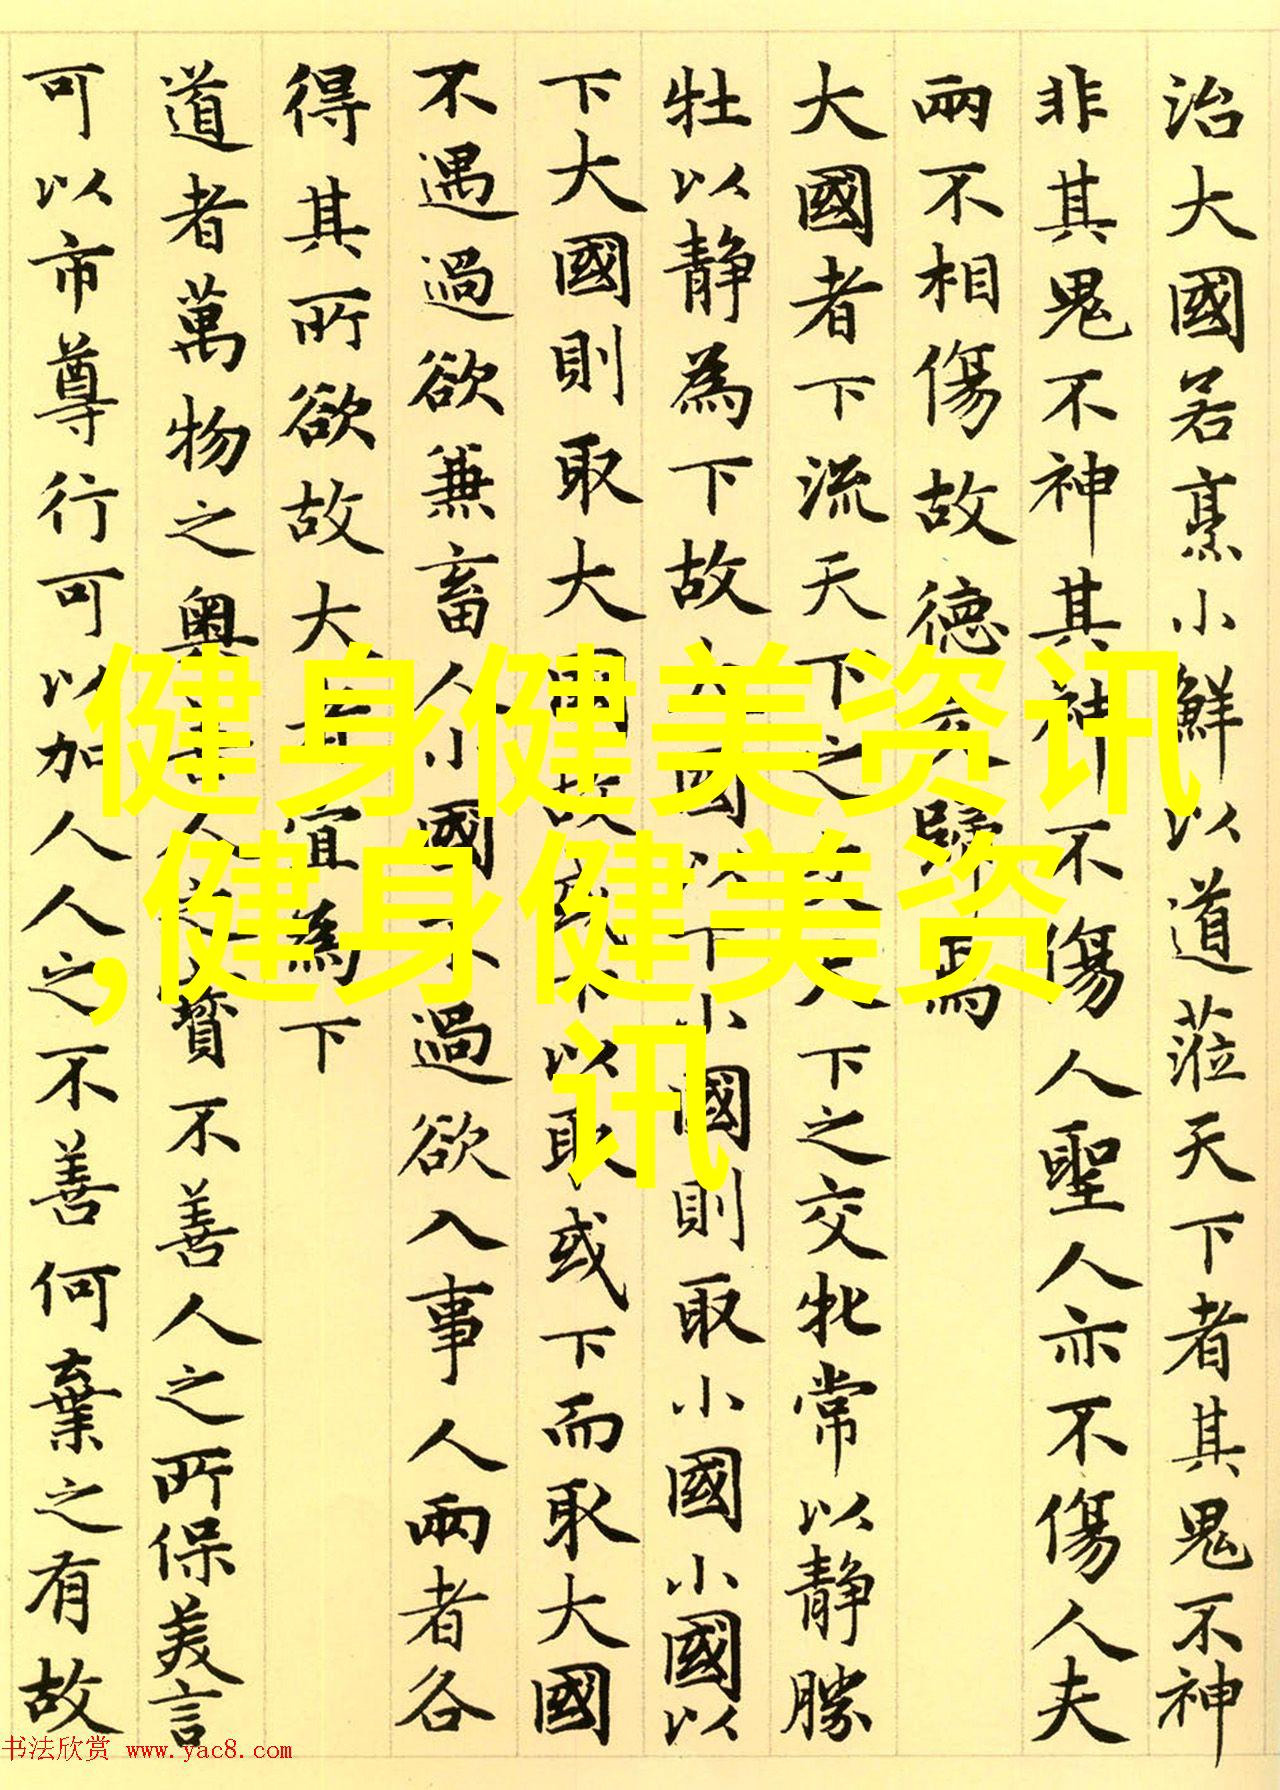 治大國若烹小鮮以道蒞天下者其鬼不神
非其鬼不神其神不傷人聖人亦不傷人夫
兩不相傷故德交歸焉
大國者下流天下之交天下之交牝常以静勝
牡以静為下故大國以下小國則取小國小國以
下大國則取大國故或下以取或下而取大國
不遇過欲兼畜人小國不過欲入事人兩者各
得其所欲故大者宜為下
道者萬物之奥善人之不善人之所保美言
可以市尊行可以加人人之不善何棄之有故
健身健美资讯
,健身健美资
讯
书法欣赏 www.yac8.com